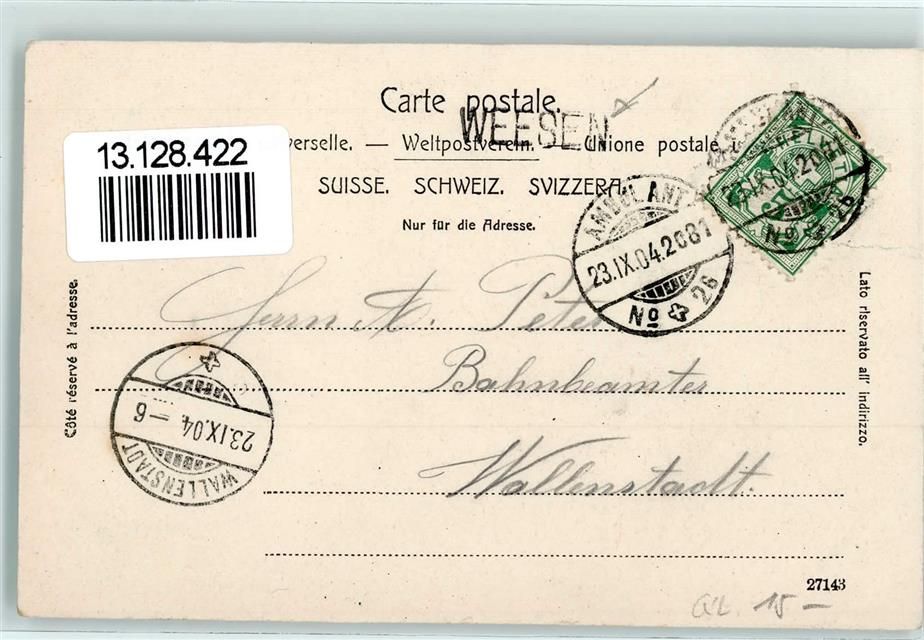 Carte postale.
WEESEN
13.128.422
verselle. — Weltpostverein. — Unione postale u
SUISSE. SCHWEIZ. SVIZZERA.
Nur für die Adresse.
AMBULANT
23.IX.04.2081
No 26
23.IX.04.2081
No 26
Côté réservé à l'adresse.
Lato riservato all' indirizzo.
Herrn A. Peter
Bahnbeamter
Wallenstadt.
23.IX.04.–6
WALLENSTADT
27143
15 –